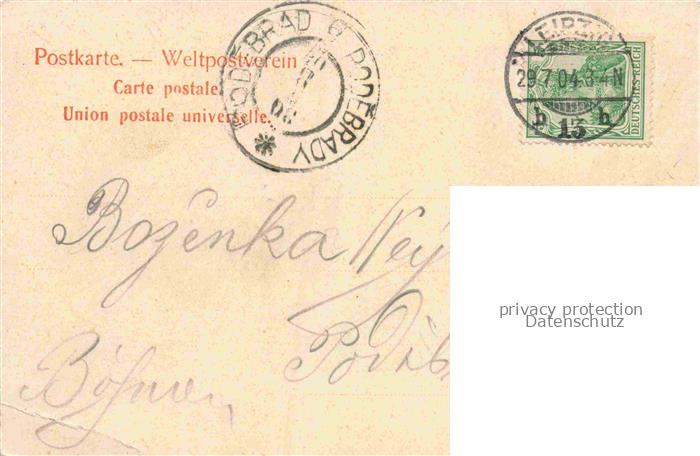 Postkarte. — Weltpostverein
Carte postale
Union postale universelle.
PODĚBRAD 6 PODĚBRADY
LEIPZIG
29.7.04.3-4N
b 13 b
DEUTSCHES REICH
Boženka
Böhmen
privacy protection
Datenschutz